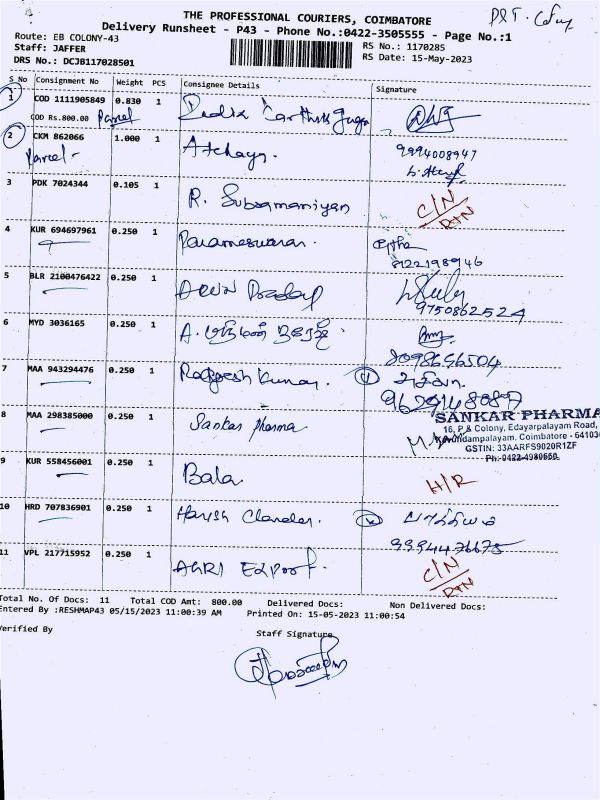 THE PROFESSIONAL COURIERS, COIMBATORE
Delivery Runsheet - P43 - Phone No.:0422-3505555 - Page No.:1
Route: EB COLONY-43
RS No.: 1170285
Staff: JAFFER
RS Date: 15-May-2023
DRS No.: DCJB117028501
S No Consignment No Weight PCS Consignee Details Signature
1 COD 1111905849 0.830 1
COD Rs.800.00 Parcel
2 CKM 862066 1.000 1 Atchaya. 9994008947
Parcel -
3 PDK 7024344 0.105 1 R. Subramaniyan C/N
RTN
4 KUR 694697961 0.250 1 Parameswaran.
8122198946
5 BLR 2100476422 0.250 1 Arun Pradap
9750862524
6 MYD 3036165 0.250 1 A.
8098656504
7 MAA 943294476 0.250 1 Rajesh kumar.
9629148087
8 MAA 298385000 0.250 1 Sankar pharma
SANKAR PHARMA
16, P & Colony, Edayarpalayam Road,
Kavundampalayam. Coimbatore - 64103
GSTIN: 33AARFS9020R1ZF
Ph:0422-4980660
9 KUR 558456001 0.250 1 Bala H/R
10 HRD 707836901 0.250 1 Harish Chander.
9994476675
11 VPL 217715952 0.250 1 AGRI Export. C/N
RTN
Total No. Of Docs: 11 Total COD Amt: 800.00 Delivered Docs: Non Delivered Docs:
Entered By :RESHMAP43 05/15/2023 11:00:39 AM Printed On: 15-05-2023 11:00:54
Verified By
Staff Signature